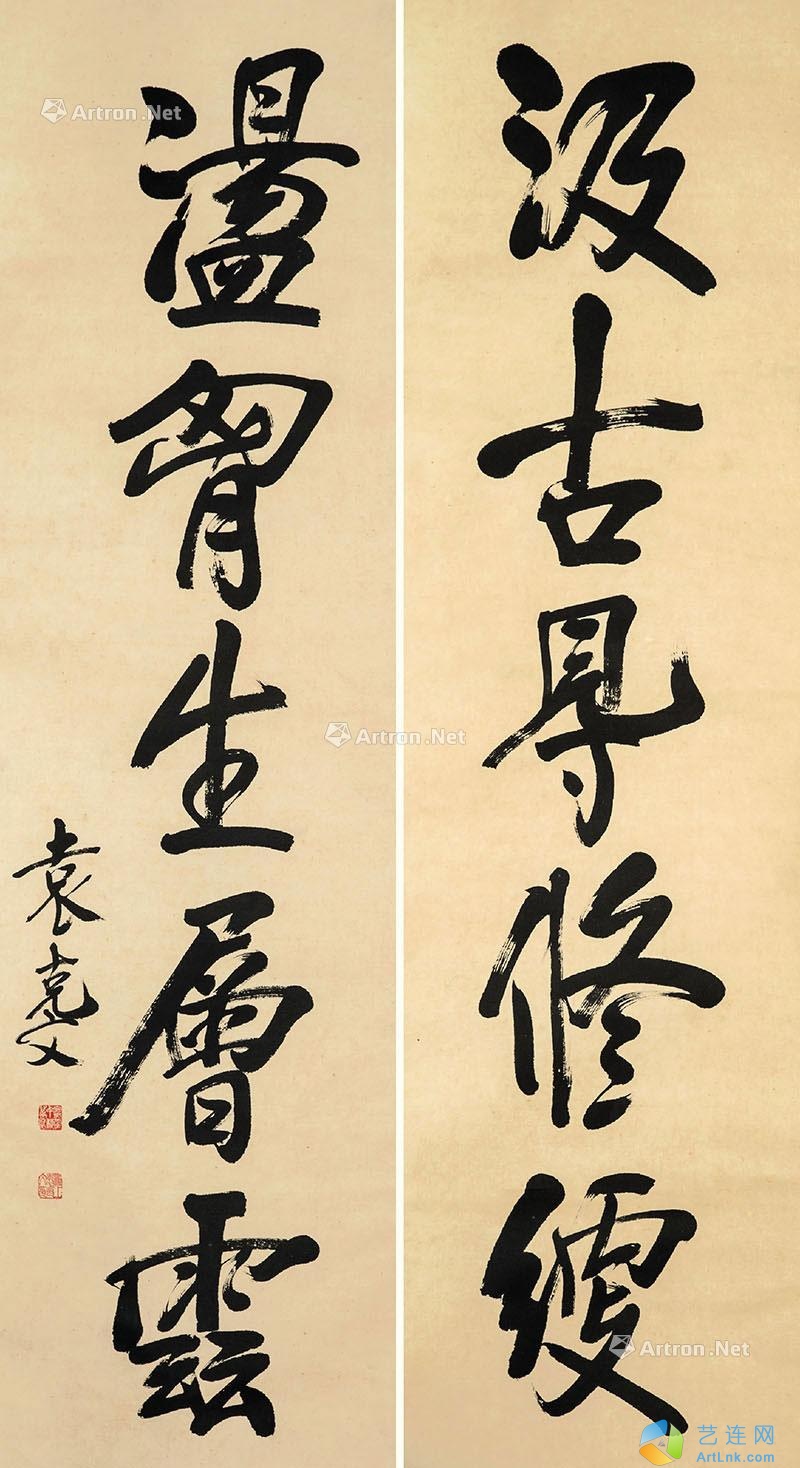 汲古㝵修綆
盪胷生層雲
袁克文
Artron.Net
Artron.Net
Artron.Net
艺连网
ArtLnk.com